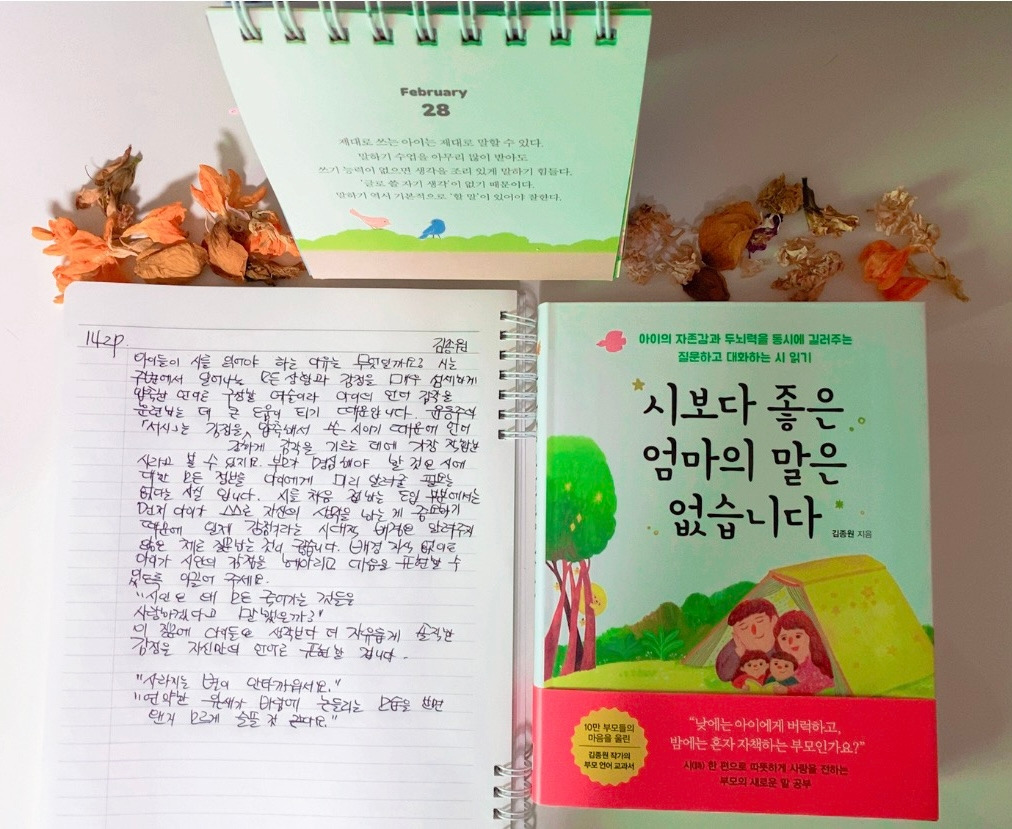 February
28
제대로 쓰는 아이는 제대로 말할 수 있다.
말하기 수업을 아무리 많이 받아도
쓰기 능력이 없으면 생각을 조리 있게 말하기 힘들다.
'글로 쓸 자기 생각'이 없기 때문이다.
말하기 역시 기본적으로 '할 말'이 있어야 잘한다.
142p.
김종원
아이들이 시를 읽어야 하는 이유는 무엇일까요? 시는
주변에서 일어나는 모든 상황과 감정을 매우 섬세하게
압축한 언어로 구성한 예술이라 아이의 언어 감각을
훈련하는 데 큰 도움이 되기 때문입니다. 윤동주의
「서시」는 감정을 압축해서 쓴 시이기 때문에 언어
강하게 감각을 기르는 데에 가장 적합한
시라고 볼 수 있지요. 부모가 명심해야 할 것은 시에
대한 모든 정보를 아이에게 미리 알려줄 필요는
없다는 사실 입니다. 시를 처음 접하는 도입 부분에서는
먼저 아이가 스스로 자신의 생각을 하는 게 중요하기
때문에 일제 강점기라는 시대적 배경은 알려주지
않은 채로 질문하는 것이 좋습니다. 배경 지식 없이도
아이가 시인의 감정을 헤아리고 마음을 표현할 수
있도록 이끌어 주세요.
"시인은 왜 모든 죽어가는 것들을
사랑하겠다고 말했을까?"
이 질문에 아이들은 생각보다 더 자유롭게 솔직한
감정을 자신만의 언어로 표현할 겁니다.
"사라지는 별이 안타까워서요."
"연약한 잎새가 바람에 흔들리는 모습을 보면
왠지 모르게 슬플 것 같아요."
아이의 자존감과 두뇌력을 동시에 길러주는
질문하고 대화하는 시 읽기
시보다 좋은
엄마의 말은
없습니다
김종원 지음
10만 부모들의
마음을 울린
김종원 작가의
부모 언어 교과서
"낮에는 아이에게 버럭하고,
밤에는 혼자 자책하는 부모인가요?"
시(詩) 한 편으로 따뜻하게 사랑을 전하는
부모의 새로운 말 공부